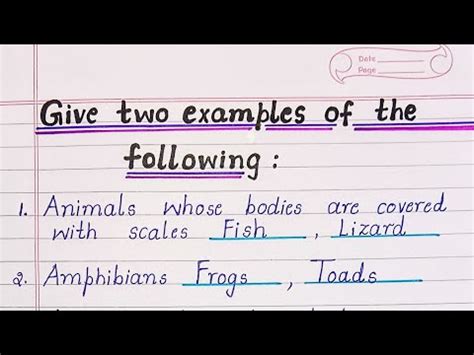 Date
Page
Give two examples of the
following :
1. Animals whose bodies are covered
with scales Fish , Lizard
2. Amphibians Frogs , Toads